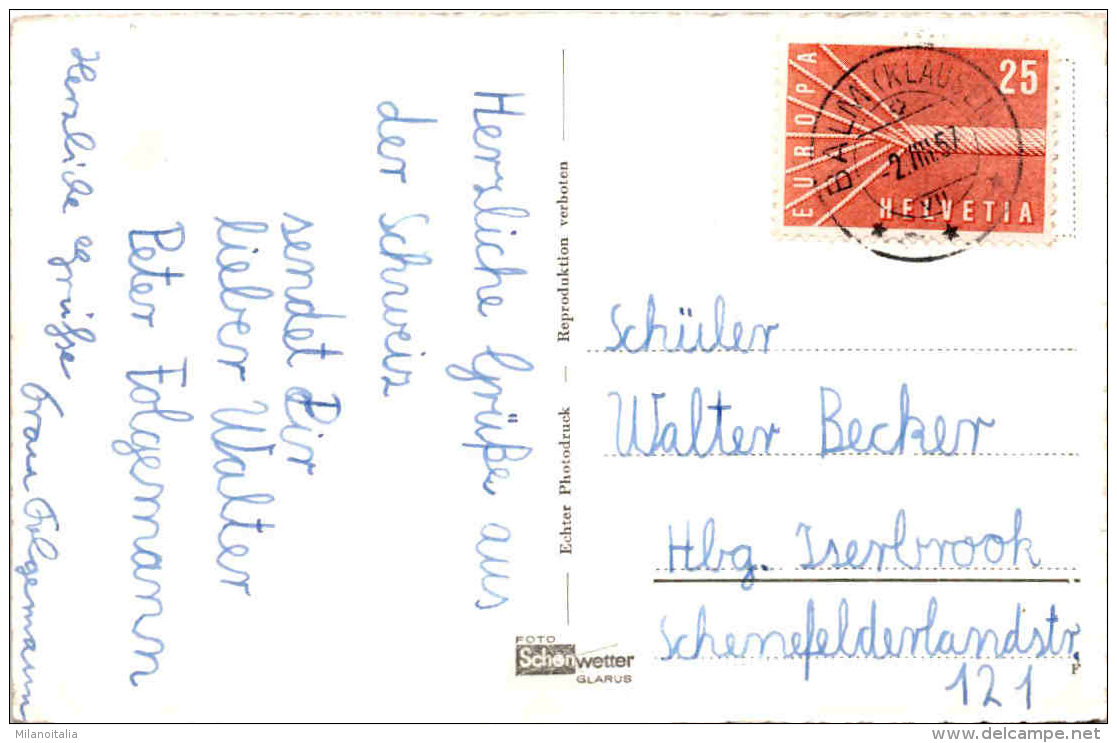 Herzliche Grüße aus
der Schweiz
sendet Dir
lieber Walter
Peter Folgemann
Herzliche Grüsse
Frau Folgemann
Echter Photodruck — Reproduktion verboten
FOTO
Schönwetter
GLARUS
25
EUROPA
HELVETIA
BALM (KLAUSEN)
-2.VIII.57
Schüler
Walter Becker
Hbg. Iserbrook
Schenefelderlandstr.
121
F
Milanoitalia
www.delcampe.net